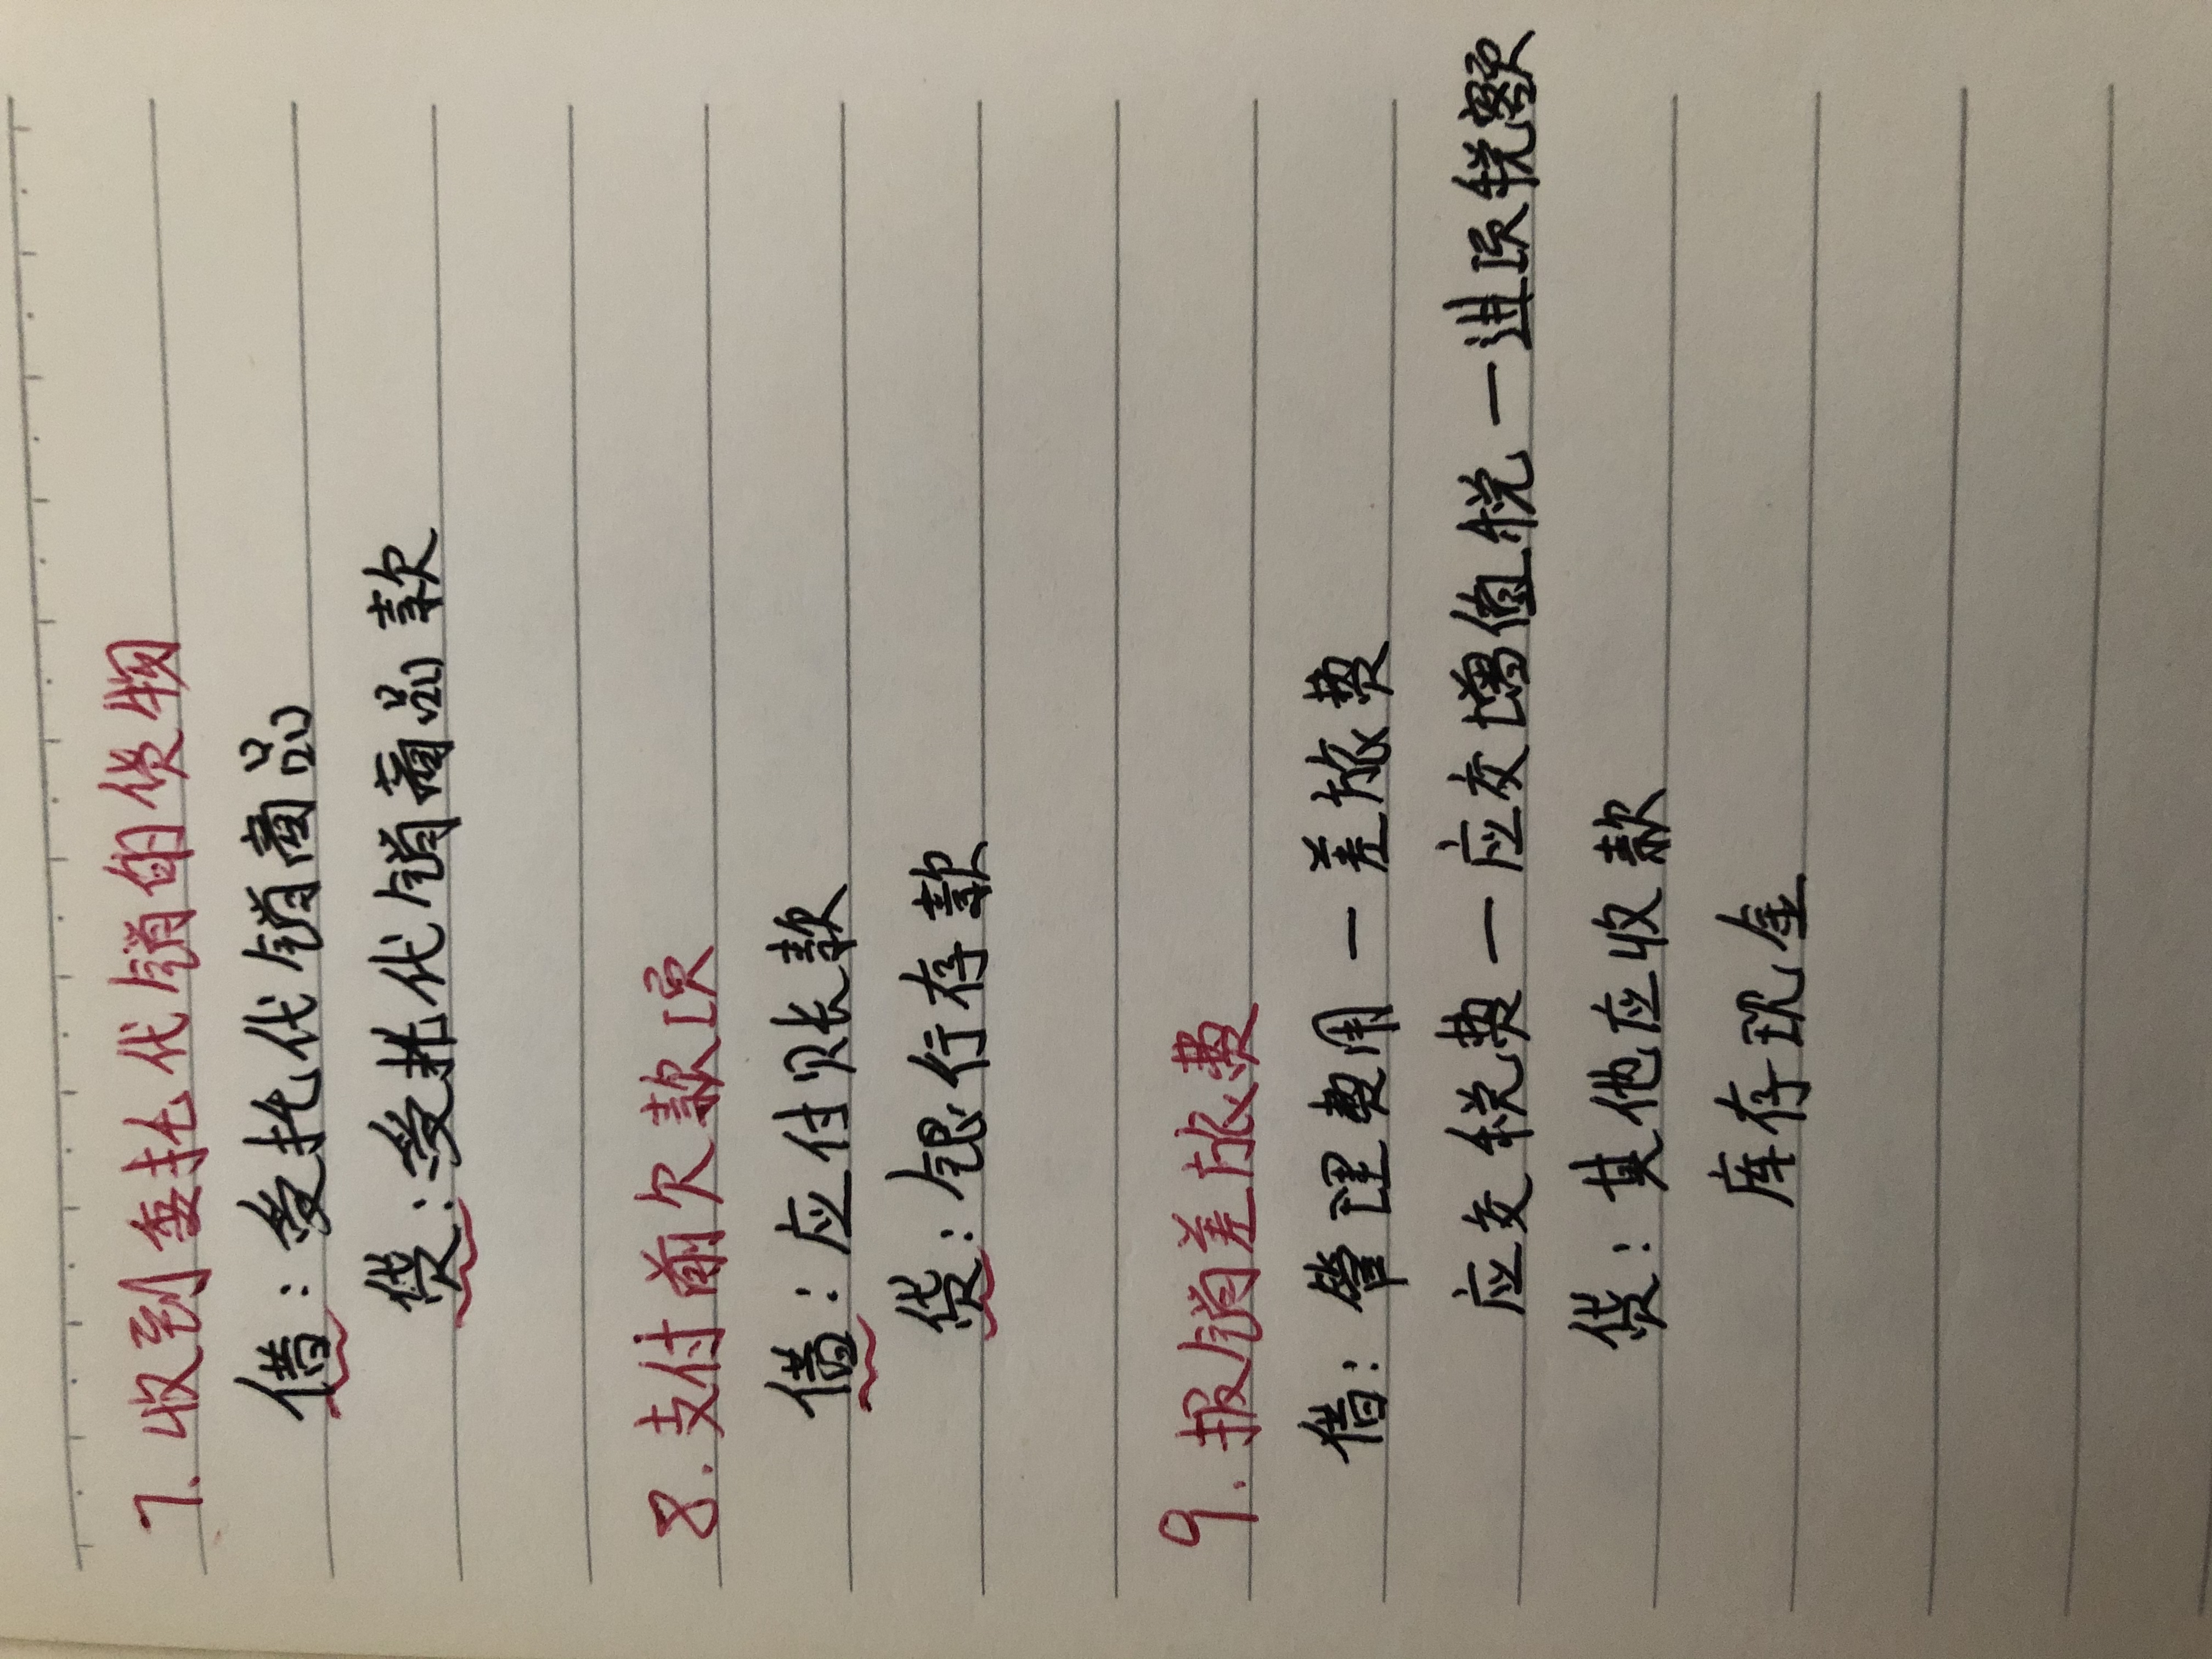 7.收到委托代销的货物
借:受托代销商品
贷:受托代销商品款
8.支付前欠款项
借:应付账款
贷:银行存款
9.报销差旅费
借:管理费用—差旅费
应交税费—应交增值税—进项税额
贷:其他应收款
库存现金